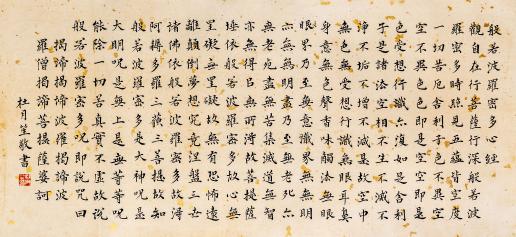 般若波羅密多心經
觀自在行菩薩行深般若波
羅密多時照見五蘊皆空度
一切苦厄舍利子色不異空
空不異色色即是空空即是
色受想行識亦復如是舍利
子是諸法空相不生不滅不
淨不垢不增不減是故空中
無色無受想行識無眼耳鼻
身意無色聲香味觸法無眼
界乃至無意識界無無明
亦無無明盡乃至無老死亦
無老死盡無苦集滅道無智
亦無得以無所得故菩提薩
埵依般若波羅密多故心無
罣礙無罣礙故無有恐怖遠
離顛倒夢想究竟涅槃三世
諸佛依般若波羅密多故得
阿耨多羅三藐三菩提故知
般若波羅密多是大神咒是
大明咒是無上是無等等咒
能除一切苦真實不虛故說
般若波羅密多咒即說咒曰
揭諦揭諦波羅揭諦波
羅僧揭諦菩提薩婆訶
杜月笙敬書